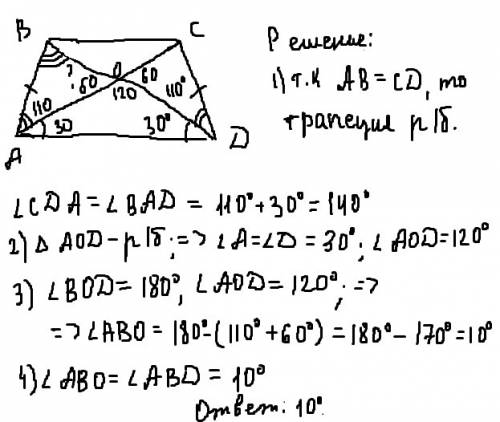 B C
? 60 O 60
110 120 110°
30 30°
A D
Решение:
1) т.к AB = CD, то
трапеция р/б.
∠CDA = ∠BAD = 110° + 30° = 140°
2) Δ AOD - р/б; => ∠A = ∠D = 30°; ∠AOD = 120°
3) ∠BOD = 180°, ∠AOD = 120°; =>
=> ∠ABO = 180° - (110° + 60°) = 180° - 170° = 10°
4) ∠ABO = ∠ABD = 10°
Ответ: 10°